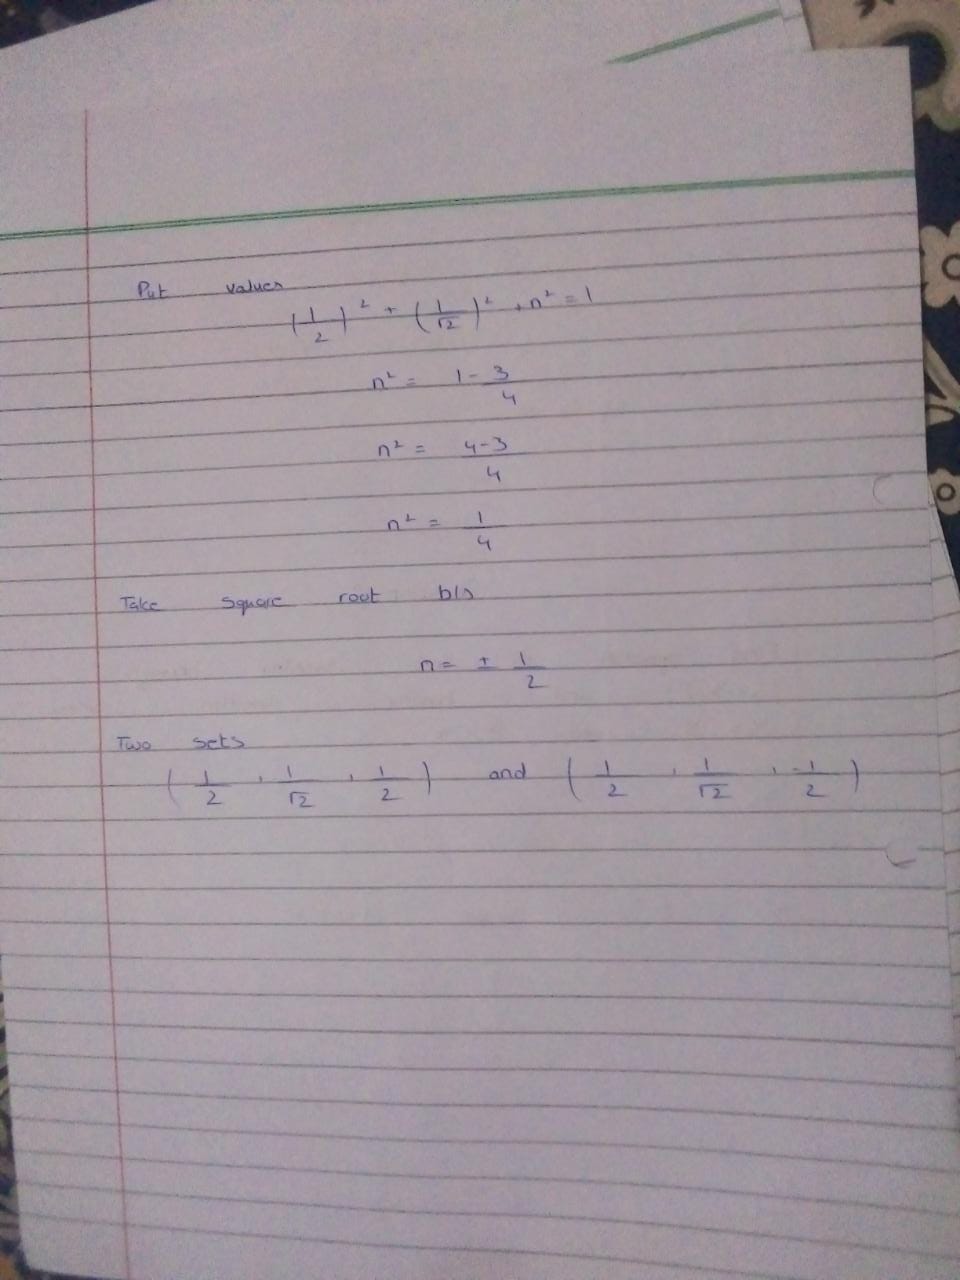 Put values
(1/2)² + (1/√2)² + n² = 1
n² = 1 - 3/4
n² = 4-3/4
n² = 1/4
Take square root b/s
n = ± 1/2
Two sets
(1/2, 1/√2, 1/2) and (1/2, 1/√2, -1/2)